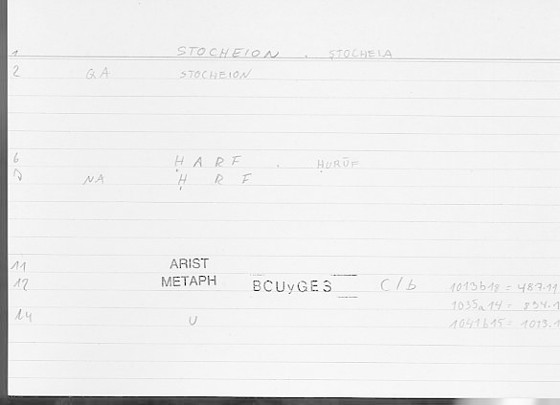 1 STOCHEION . STOCHEIA
2 QA STOCHEION
6 ḤARF . ḤURŪF
7 NA Ḥ R F
11 ARIST
12 METAPH BCUyGES C/b 1013b18 = 487.11
1035a14 = 834.1
14 U 1041b15 = 1013.1